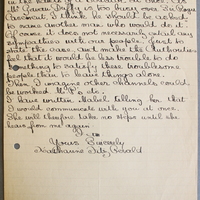 is
if Queen Sophie is to be over in Prague
Arsenal I think he should be asked
to name another man who would do it.
Of course it does not necessarily entail any
sympathy with our people; just to
state the case, and make the Authorities
feel that it would be less trouble to do
something to satisfy these troublesome
people than to leave things alone.
Then I imagine other channels could
be worked M.P.'s etc:
I have written Mabel telling her that
I would communicate with you at once.
She will therefore take no steps until she
hears from me again
I am
Yours Sincerely
Kathleen Fitz